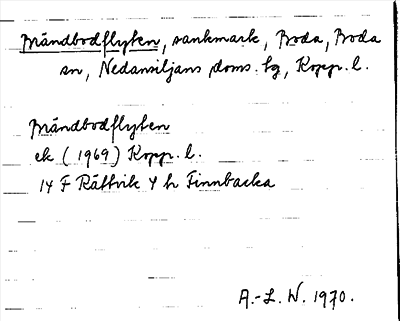 Mändbodflyten, sankmark, Boda, Boda
sn, Nedansiljans doms. tg, Kopp. l.
Mändbodflyten
ek (1969) Kopp. l.
14 F Rättvik 4 h Finnbacka
A.-L. W. 1970.